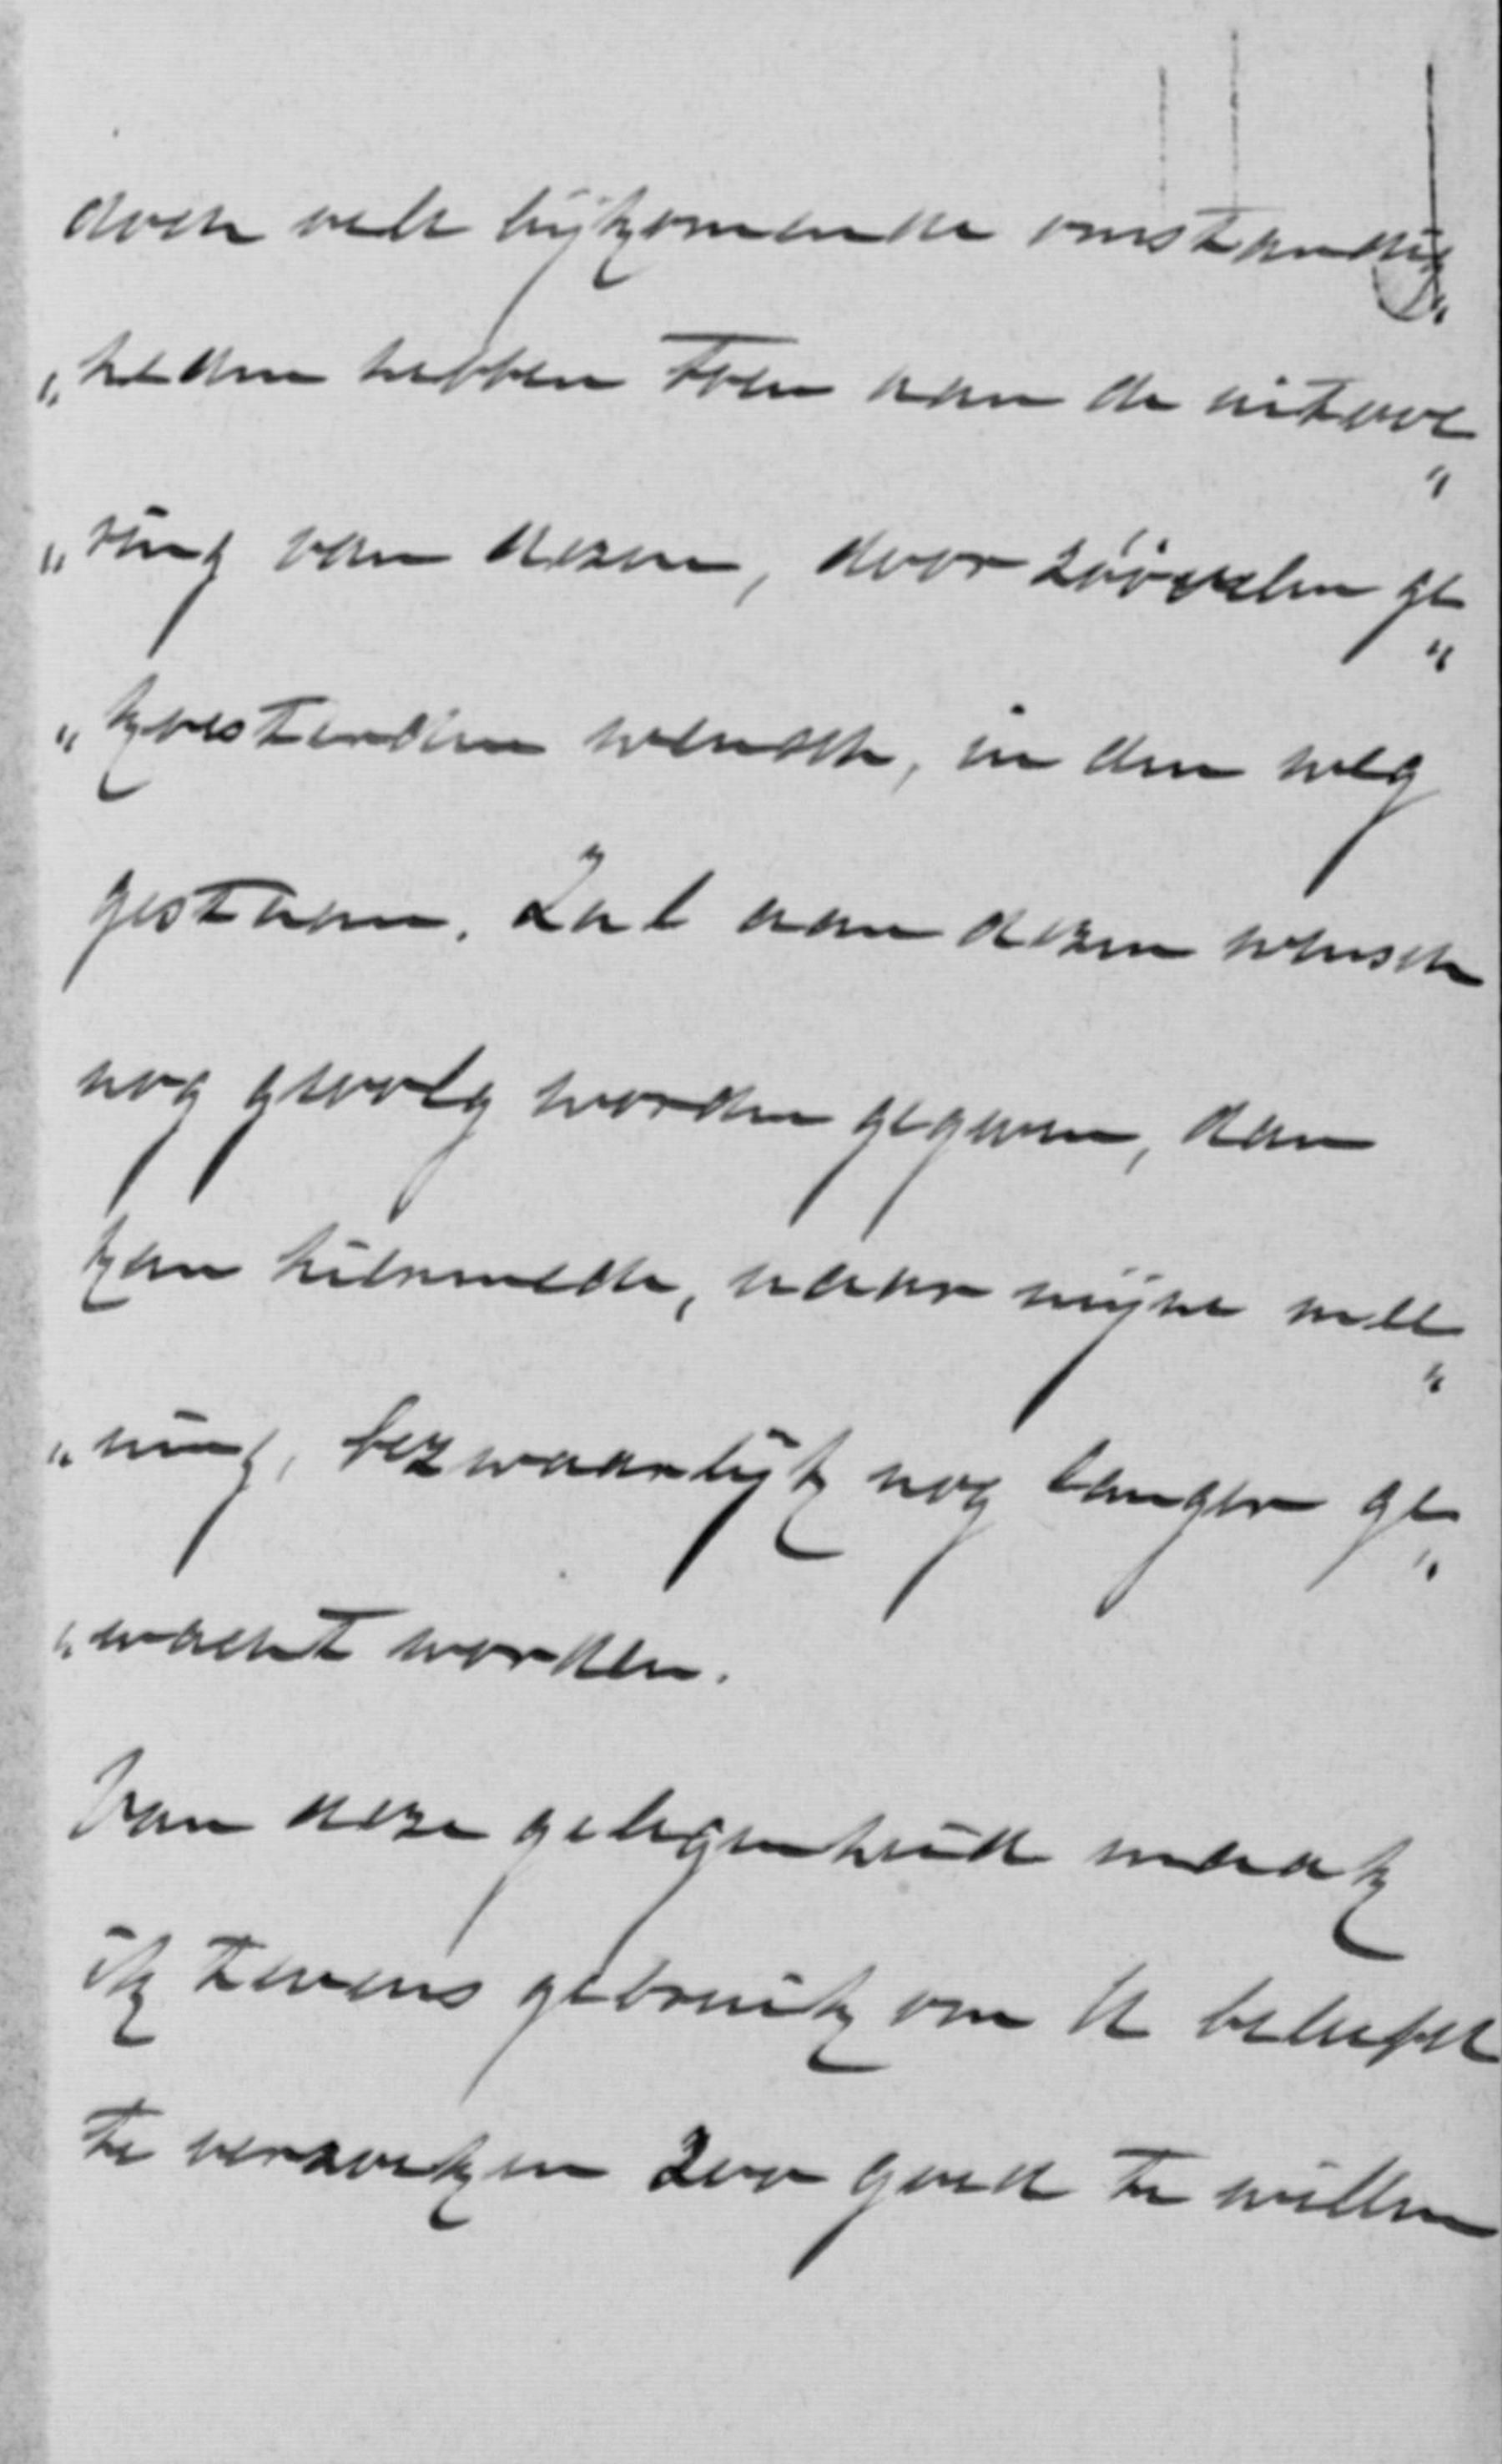 doch vele bijkomende omstandig„
„heden hebben toen aan de uitvoe„
„ring van dezen, door zóóvelen ge„
„koesterden wensch, in den weg
gestaan. Zal aan dezen wensch
nog gevolg worden gegeven, dan
kan hiermede, naar mijne mee„
„ning, bezwaarlijk nog langer ge„
„wacht worden.
Van deze gelegenheid maak
ik tevens gebruik om U beleefd
te verzoeken zoo goed te willen